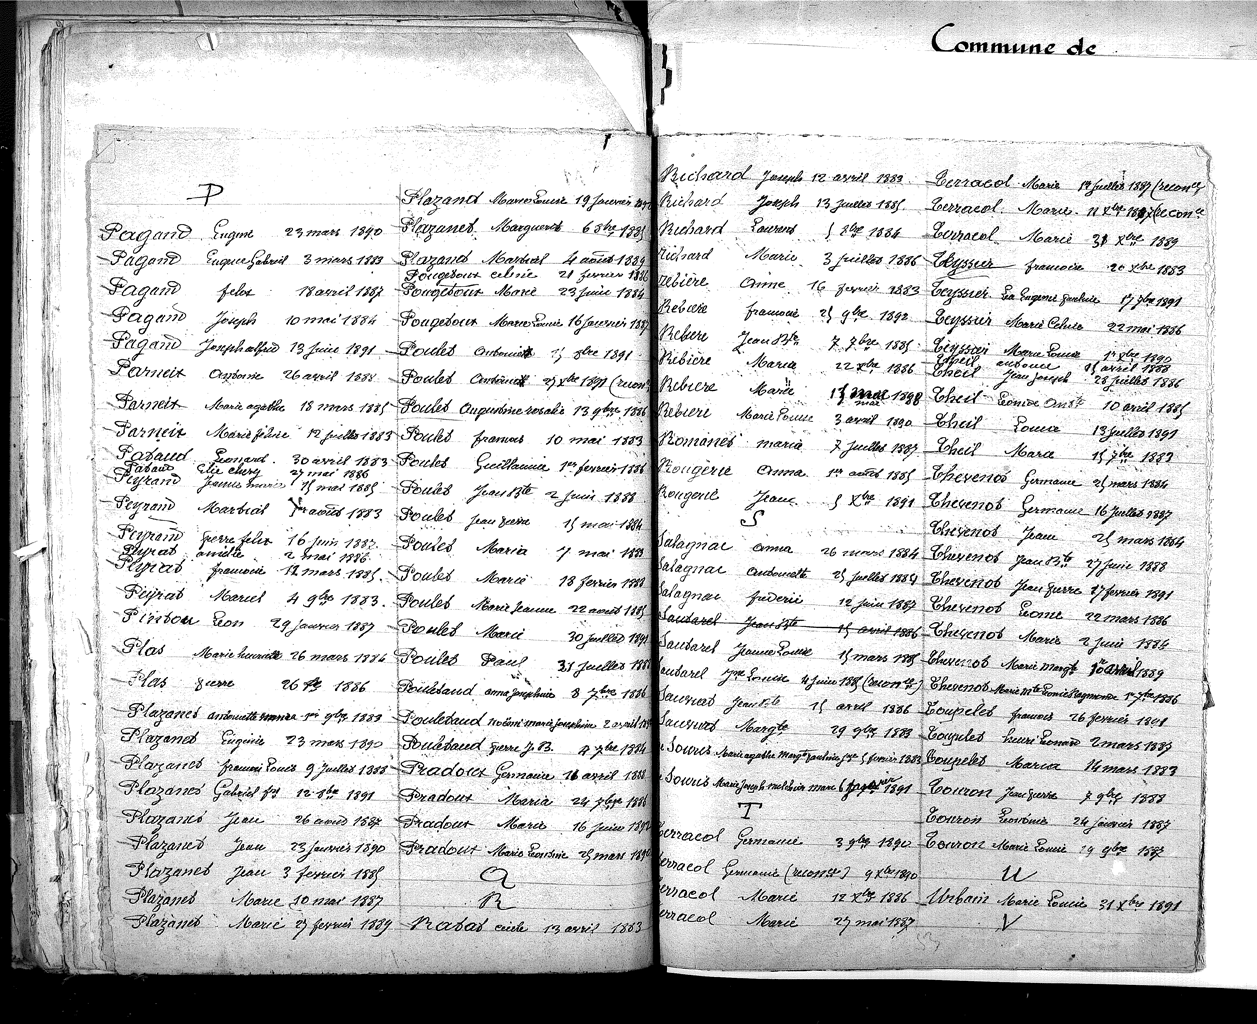 Commune de
P
Pagand Eugene 23 mars 1890
Pagand Eugene Gabriel 3 mars 1883
Pagand felix 18 avril 1887
Pagand Joseph 10 mai 1884
Pagand Joseph alfred 13 Juin 1891
Parneix Antoine 26 avril 1888
Parneix Marie agathe 18 mars 1885
Parneix Marie félicie 12 Juillet 1883
Pataud Leonard 30 avril 1883
Pataud 27 mai 1886
Peyrand Jeanne marie 15 mai 1885
Peyrand Martial août 1883
Peyrand pierre felix 16 Juin 1887
Peyrat 2 mai 1886
Peyrat francois 12 mars 1885
Peyrat Marcel 4 9bre 1883
Léon 29 Janvier 1887
Plas Marie henriette 26 mars 1886
Plas pierre 26 1886
Plazanet antoinette 1er 9bre 1883
Plazanet Eugénie 23 mars 1890
Plazanet francois Louis 9 Juillet 1888
Plazanet Gabriel 12 1891
Plazanet Jean 26 août 1887
Plazanet Jean 23 Janvier 1890
Plazanet Jean 3 fevrier 1885
Plazanet Marie 10 mai 1887
Plazanet Marie 27 fevrier 1889
Plazand Marie Louise 19 Janvier
Plazanet Marguerite 6 8bre 1885
Plazanet Martial 4 août 1889
Pougetoux celine 21 fevrier 1886
Pougetoux Marie 23 Juin 1884
Pougetoux Marie Louise 16 Janvier 1887
Poulet antoinette 15 8bre 1891
Poulet Antoinette 27 Xbre 1891 (reconce)
Poulet Augustine rosalie 13 9bre 1886
Poulet francois 10 mai 1883
Poulet Guillaume 1er fevrier 1886
Poulet Jean Bte 2 Juin 1888
Poulet Jean pierre 15 mai 1884
Poulet Maria 7 mai 1888
Poulet Marie 18 fevrier 1888
Poulet Marie Jeanne 22 août 1885
Poulet Marie 30 Juillet 1891
Poulet Paul 31 Juillet 1888
Pouletaud anne Josephine 8 7bre 1886
Pouletaud marie Josephine 2 avril
Pouletaud pierre J B. 4 7bre 1884
Pradoux Germaine 16 avril 1888
Pradoux Maria 24 7bre 1886
Pradoux Marie 16 Juin 1892
Pradoux Marie Leontine 25 mars 1890
Q
R
Ratat cécile 13 avril 1883
Richard Joseph 12 avril 1883
Richard Joseph 13 Juillet 1885
Richard Laurent 5 8bre 1884
Richard Marie 3 Juillet 1886
Rebière Anna 16 fevrier 1883
Rebière francois 25 9bre 1892
Rebière Jean Bte 7 7bre 1885
Rebière Maria 22 Xbre 1886
Rebière Marie 15 mai 1888
Rebière Marie Louise 3 avril 1890
Romanet maria 7 Juillet 1887
Rougerie Anna 1er août 1885
Rougerie Jean 5 Xbre 1891
S
Salagnac anna 26 mars 1884
Salagnac antoinette 25 Juillet 1884
Salagnac frederic 12 Juin 1887
Sautarel Jean Bte 15 avril 1886
Sautarel Jeanne Louise 15 mars 1885
Sautarel Louise 4 Juin 1885 (reconce)
Sauviat Jean Bte 15 avril 1886
Sauviat Margte 29 9bre 1883
Souris Marie agathe Margte 5 fevrier 1883
Souris Marie Joseph melchior marc 6 Janvier 1891
T
Terracol Germaine 3 9bre 1890
Terracol Germaine (reconce) 9 Xbre 1890
Terracol Marie 12 Xbre 1886
Terracol Marie 27 mai 1887
Terracol Marie 12 Juillet 1887 (reconce)
Terracol Marie 11 Xbre 1887 (reconce)
Terracol Marie 31 Xbre 1889
Teyssier francoise 20 Xbre 1883
Teyssier Eugene 17 7bre 1891
Teyssier Marie Celine 22 mai 1886
Teyssier Marie Louise 1er Xbre 1890
Theil antoine 15 avril 1888
Theil Jean Joseph 28 Juillet 1886
Theil Leonie 10 avril 1885
Theil Louise 13 Juillet 1891
Theil Maria 15 7bre 1883
Thevenot Germaine 25 mars 1884
Thevenot Germaine 16 Juillet 1887
Thevenot Jean 25 mars 1884
Thevenot Jean Bte 27 Juin 1888
Thevenot Jean pierre 27 fevrier 1891
Thevenot Léonie 22 mars 1886
Thevenot Marie 2 Juin 1884
Thevenot Marie Margte 1er avril 1889
Thevenot Marie Louise 1er 7bre 1886
Toupelet francois 26 fevrier 1891
Toupelet henri Leonard 2 mars 1887
Toupelet Maria 14 mars 1883
Touron Jean pierre 7 9bre 1888
Touron Léontine 24 Janvier 1887
Touron Marie Louise 19 9bre 1887
U
Urbain Marie Louise 31 Xbre 1891
V